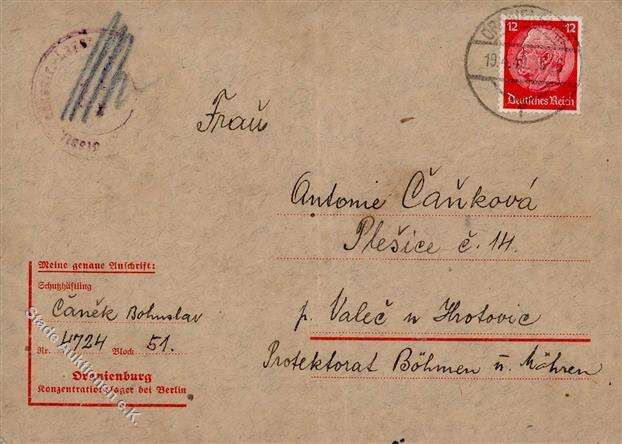 12 12
Deutsches Reich
Frau
Antonie Čaňková
Plešice č. 14.
p. Valeč u Hrotovic
Protektorat Böhmen u. Mähren
Meine genaue Anschrift:
Schutzhäftling
Čaněk Bohuslav
Nr. 4724 Block 51.
Oranienburg
Konzentrationslager bei Berlin